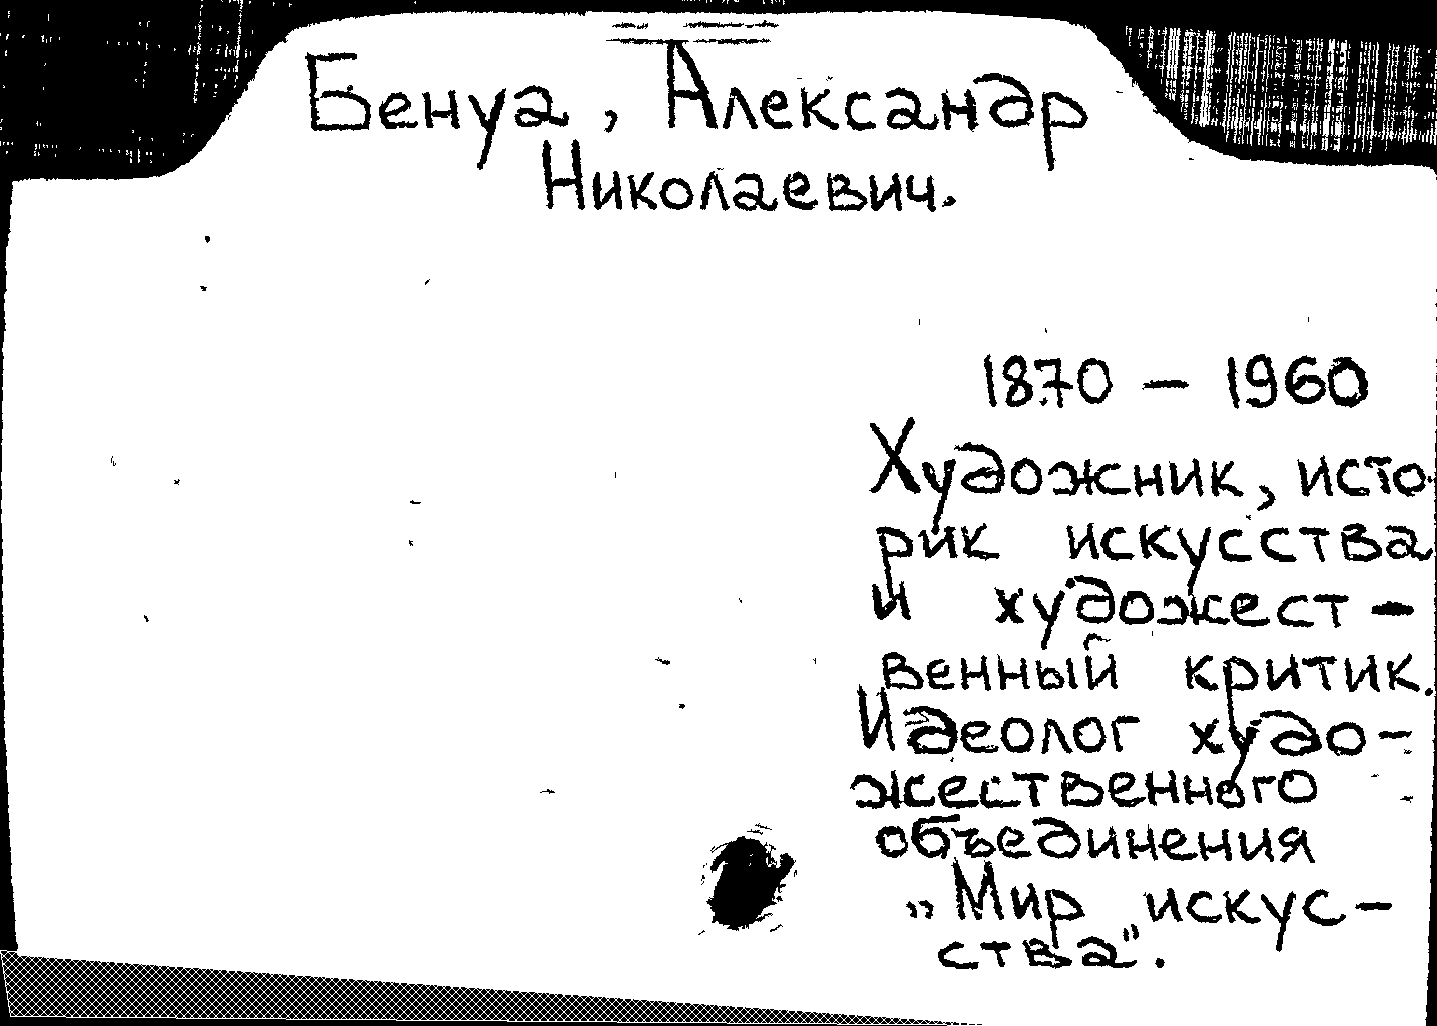 Бенуа, Александр
Николаевич.
1870 – 1960
Художник, исто-
рик искусства
и художест-
венный критик.
Идеолог худо-
жественного
объединения
„Мир искус-
ства".